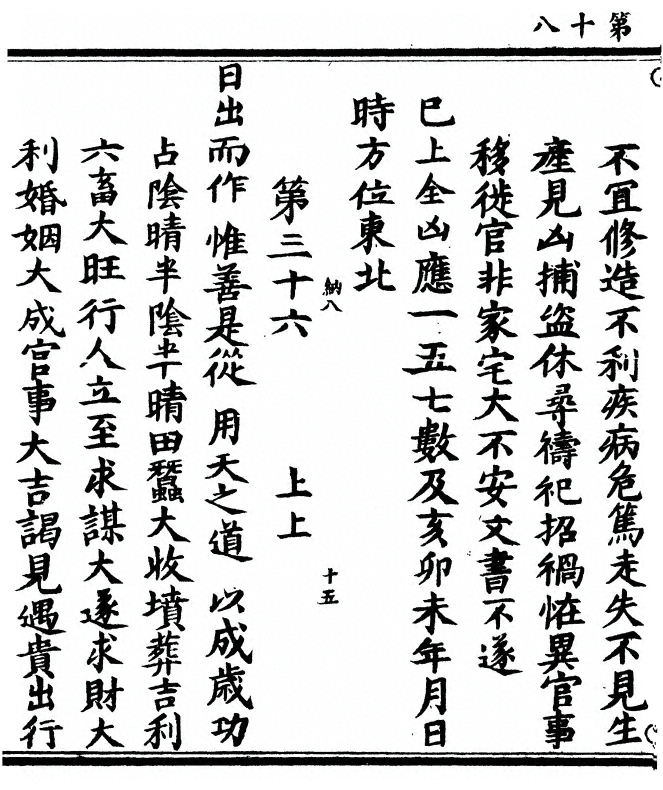 第十八
不宜修造不利疾病危篤走失不見生
產見凶捕盜休尋禱祀招禍恠異官事
移徙官非家宅大不安文書不遂
已上全凶應一五七數及亥卯未年月日
時方位東北
納八
十五
第三十六 上上
日出而作 惟善是從 用天之道 以成歲功
占陰晴半陰半晴田蠶大收墳葬吉利
六畜大旺行人立至求謀大遂求財大
利婚姻大成官事大吉謁見遇貴出行